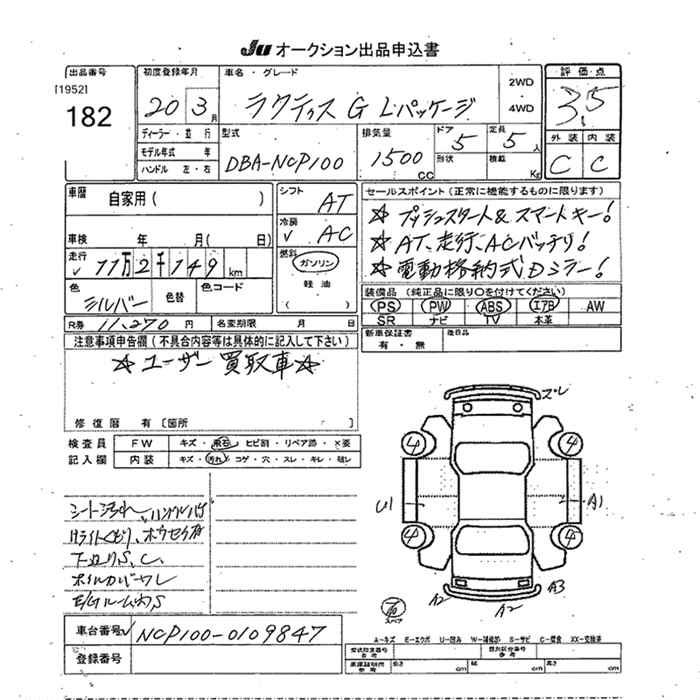 JU オークション出品申込書
出品番号 初度登録年月 車名・グレード 評価点
[1952]
182 20 3月 ラクティス G Lパッケージ 2WD 4WD 3.5
ディーラー・並行 型式 排気量 ドア 定員 外装 内装
モデル年式 年 DBA-NCP100 1500CC 5 5人 C C
ハンドル 左・右 形状 積載 Kg
車歴 自家用( ) シフト AT セールスポイント(正常に機能するものに限ります)
冷房 ✓ AC ☆ プッシュスタート&スマートキー!
車検 年 月( 日) ☆ AT、走行、ACバッチリ!
走行 ✓ 11万2千149km 燃料 ガソリン 軽油 ( ) ☆ 電動格納式Dミラー!
色 シルバー 色替 色コード 装備品(純正品に限り○を付けてください)
PS PW ABS エアB AW
R券 11,270円 名変期限 月 日 SR ナビ TV 本革
注意事項申告欄(不具合内容等は具体的に記入して下さい) 新車保証書 有・無 後日品
☆ユーザー買取車☆
修復歴 有[箇所 ]
ズレ
検査員 FW キズ・飛石・ヒビ割・リペア跡・X要
記入欄 内装 キズ・汚れ・コゲ・穴・スレ・キレ・破レ
4 4
U1 A1
シート汚れ、ハンドル
4 4
下廻りS、C、
ホイルカバーワレ
A2 A2 A3
スペア
車台番号 ✓ NCP100-0109847
A-キズ E-エクボ U-凹み W-補修跡 S-サビ C-腐食 XX-交換済
登録番号
長さ cm 幅 cm 高さ cm